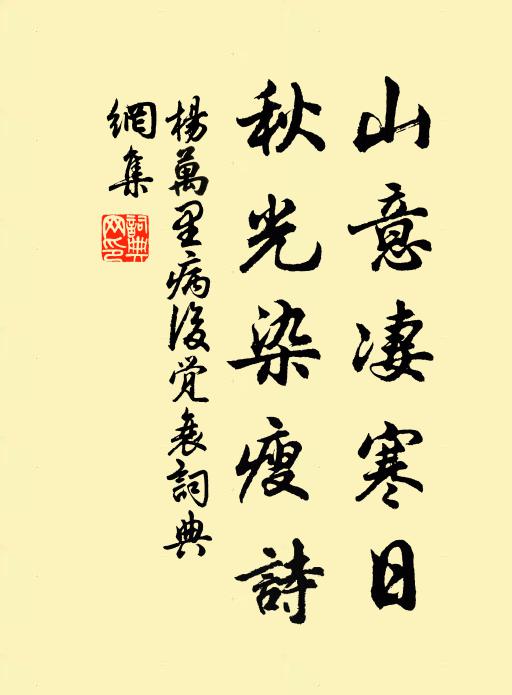 山意凄寒日
秋光染瘦詩
楊萬里病後觉衰詞典
網集
詞典
网印